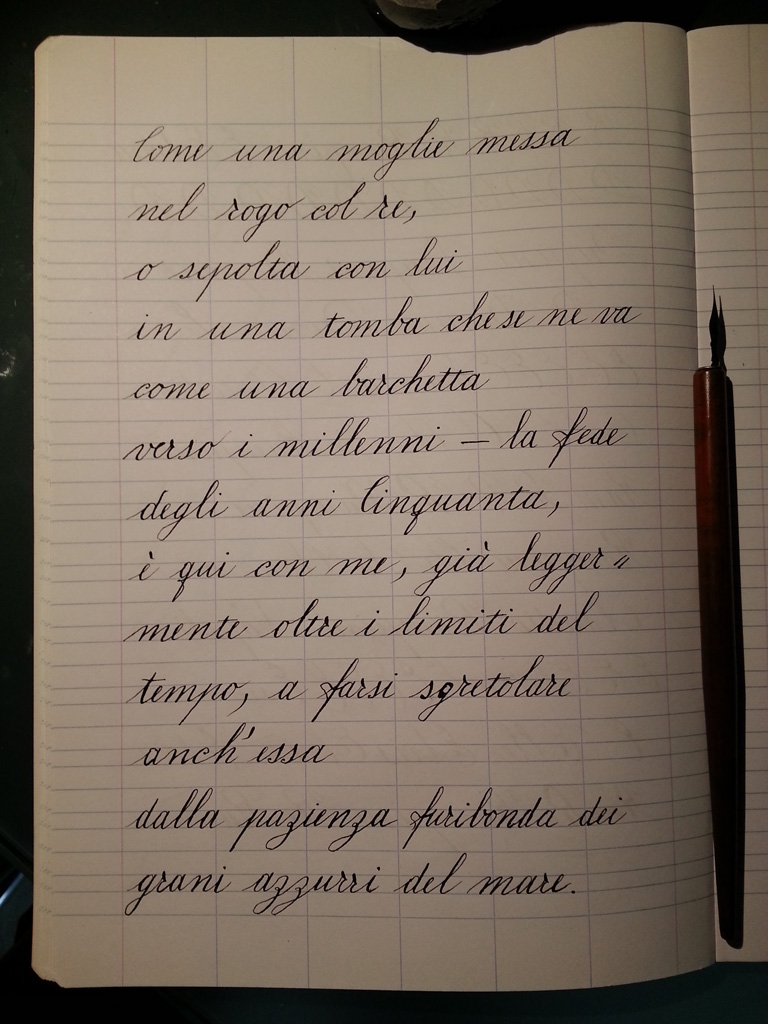 Come una moglie messa
nel rogo col re,
o sepolta con lui
in una tomba che se ne va
come una barchetta
verso i millenni – la fede
degli anni Cinquanta,
è qui con me, già legger〃
mente oltre i limiti del
tempo, a farsi sgretolare
anch'essa
dalla pazienza furibonda dei
grani azzurri del mare.